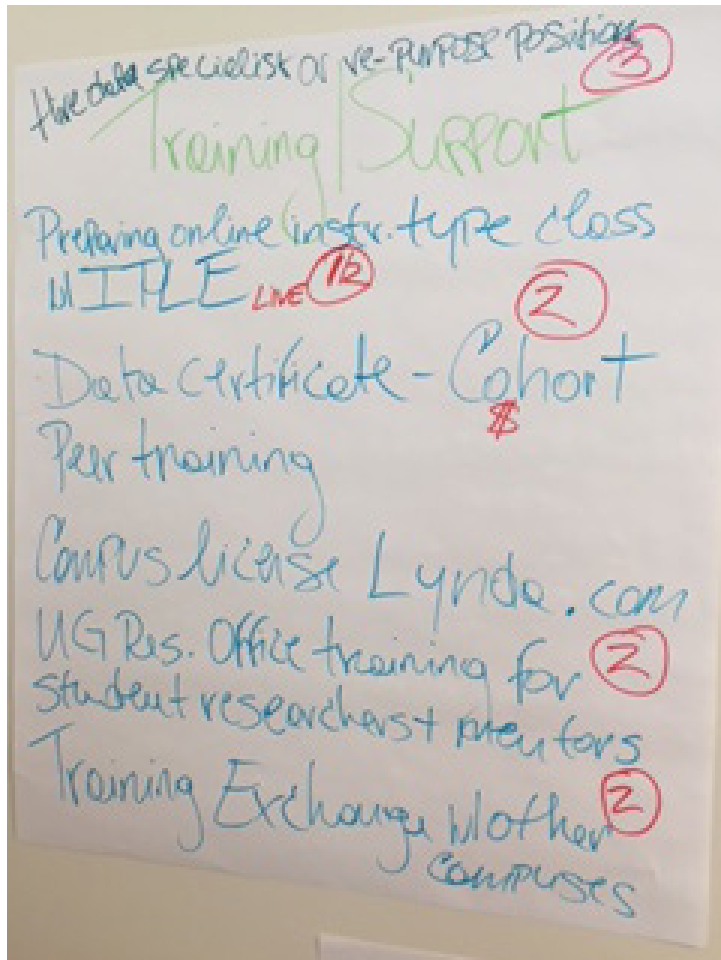 Hire data specialist or re-purpose position
3
Training/Support
Preparing online instr. type class
w/ ITLE LIVE 12
2
Data certificate - Cohort
$
Peer training
Campus license Lynda.com
UG Res. Office training for 2
student researchers + mentors
Training Exchange w/other 2
campuses